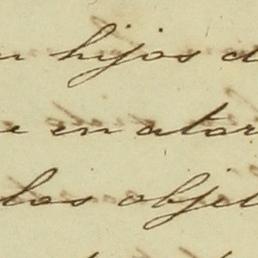 hijos d
e en ator
los obje